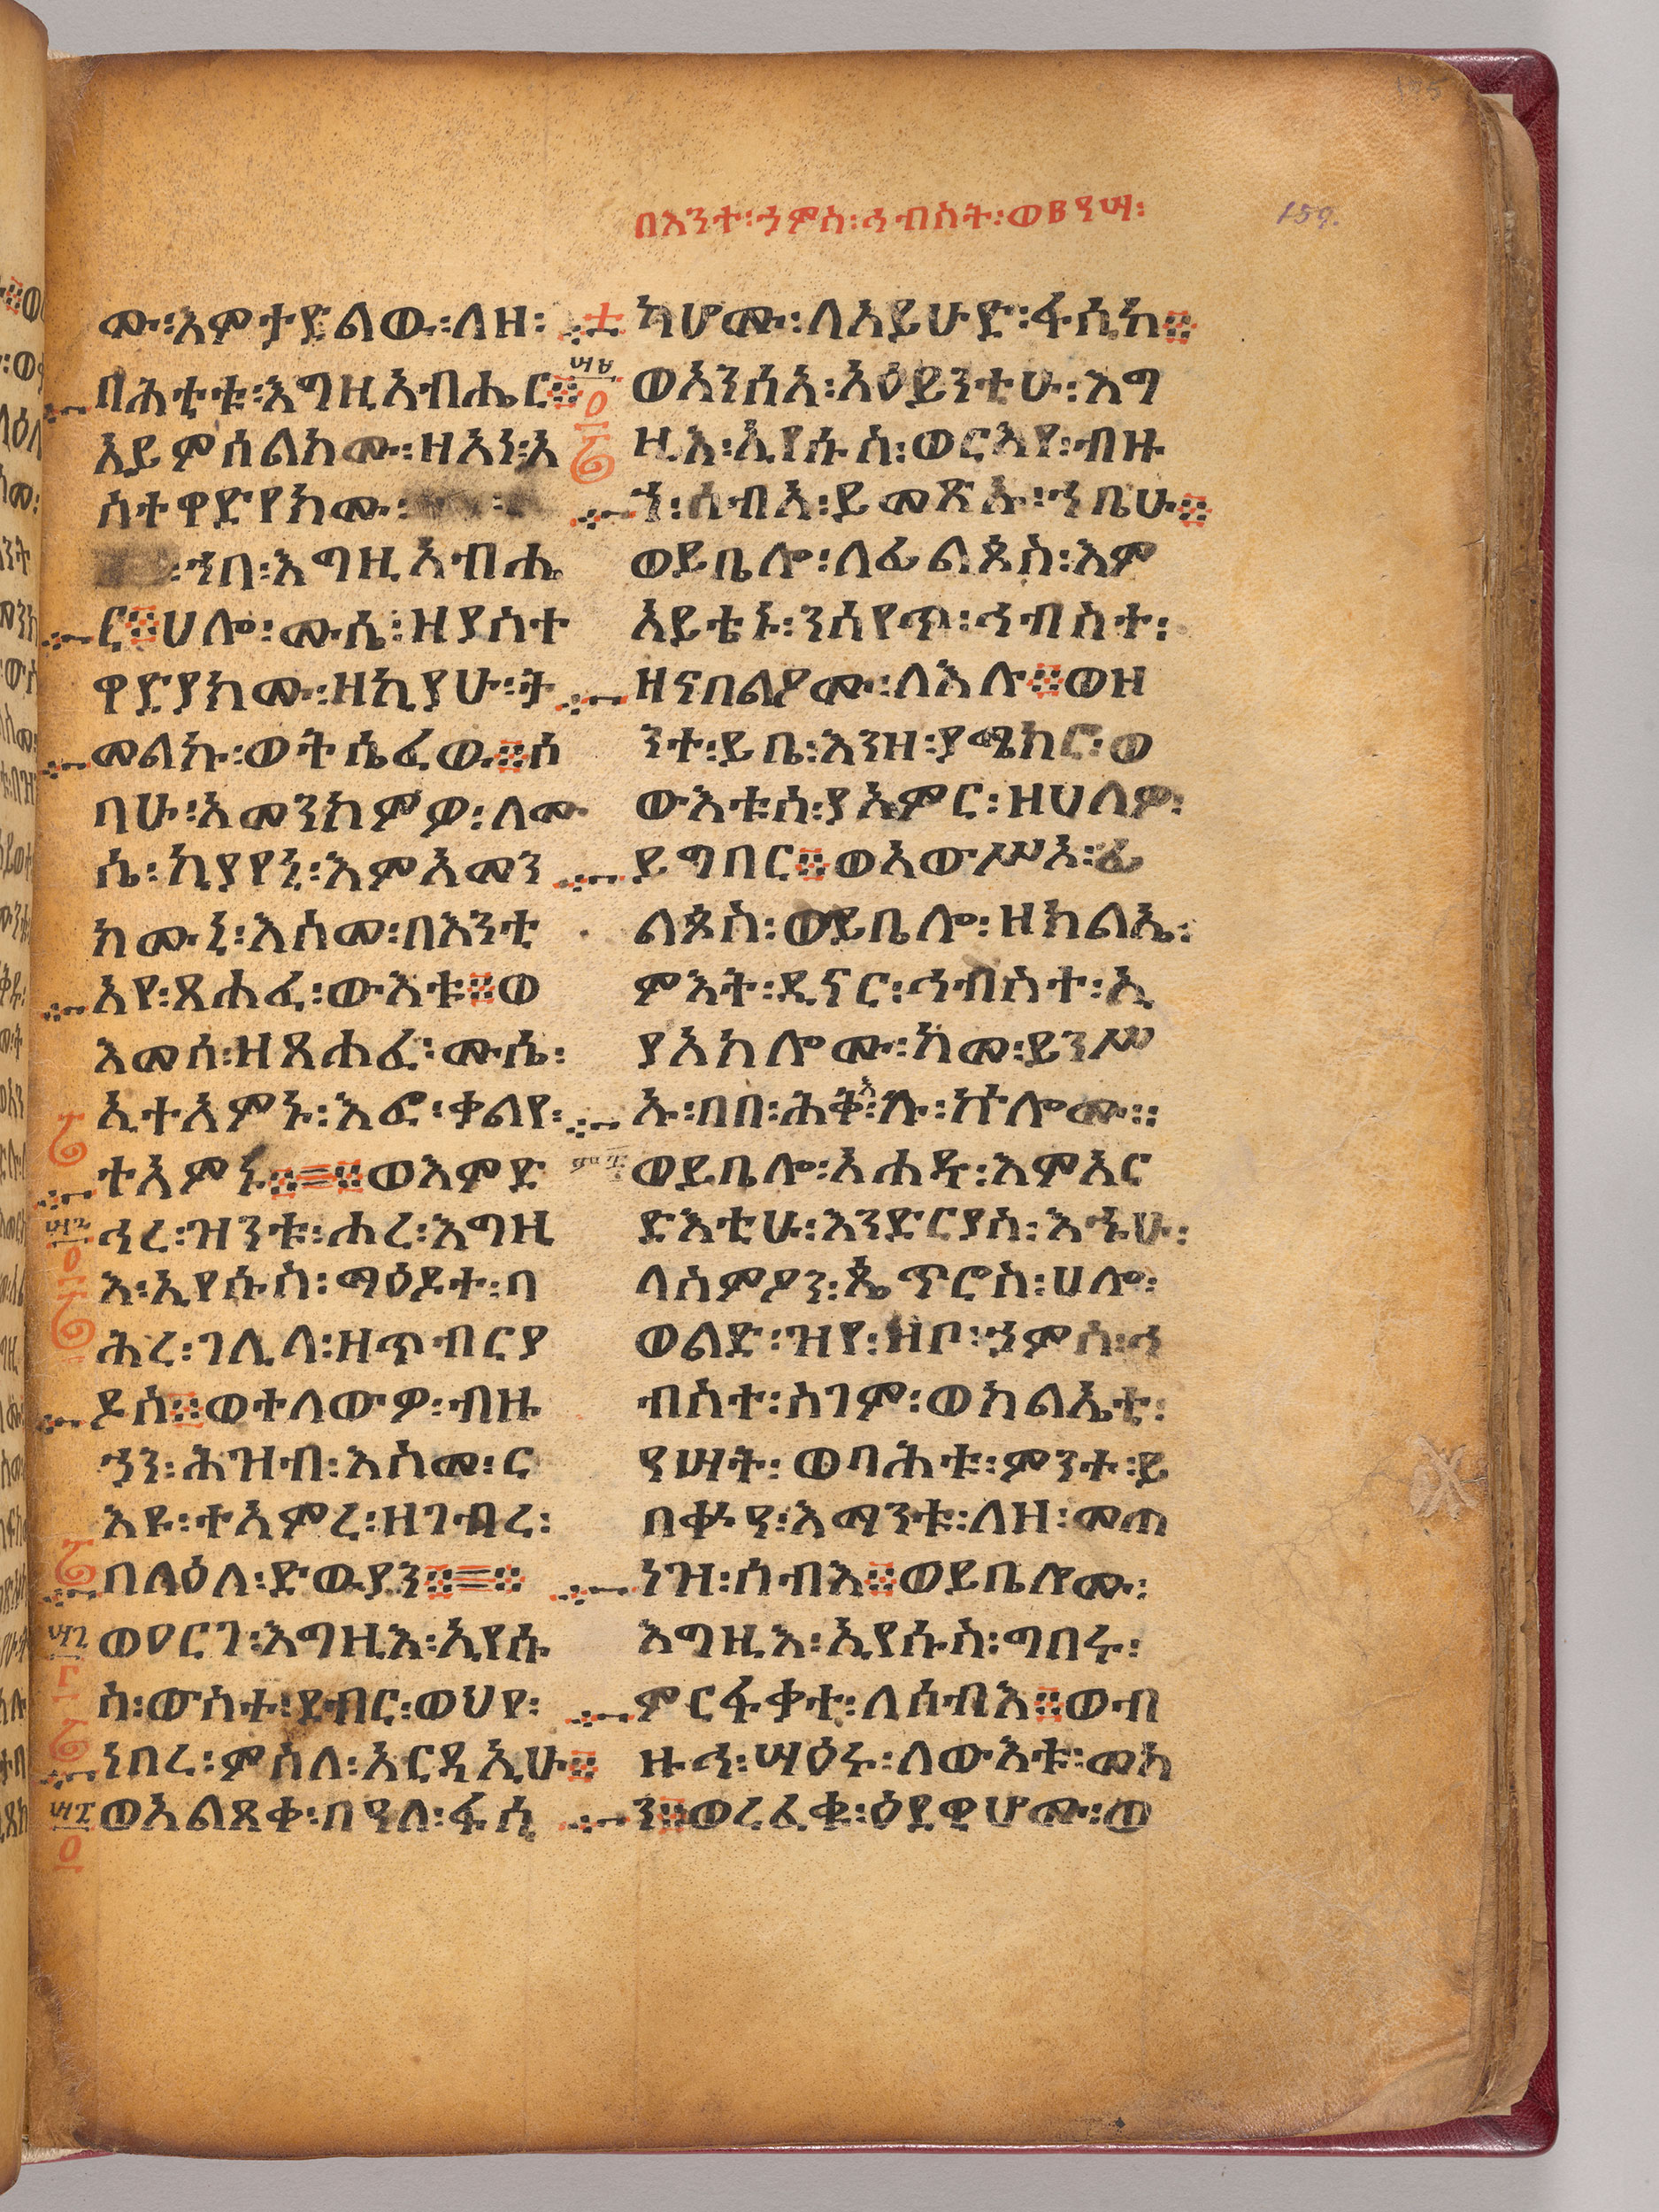 በእንተ፡ኃምስ፡ኅብስት፡ወ፪ዓሣ፡
159.
ሙ፡እምታድልዉ፡ለዘ፡
ባሕቲቱ፡እግዚአብሔር፨
አይምሰልክሙ፡ዘአነ፡አ
ስተዋድየክሙ፡
፡ኀበ፡እግዚአብሔ
ር፨ሀሎ፡ሙሴ፡ዘያስተ
ዋድያክሙ፡ዘኪያሁ፡ት
መልኩ፡ወትሴፈዉ፨ሶ
ባሁ፡አመንክምዎ፡ለሙ
ሴ፡ኪያየኒ፡እምአመን
ክሙኒ፡እስመ፡በእንቲ
አየ፡ጸሐፈ፡ውእቱ፨ወ
እመሰ፡ዘጸሐፈ፡ሙሴ፡
ኢተአምኑ፡እፎ፡ቃልየ፡
ተአምኑ፨=፨ወእምድ
ኅረ፡ዝንቱ፡ሐረ፡እግዚ
እ፡ኢየሱስ፡ማዕዶተ፡ባ
ሕረ፡ገሊላ፡ዘጥብርያ
ዶስ፨ወተለውዎ፡ብዙ
ኃን፡ሕዝብ፡እስመ፡ር
እዩ፡ተአምረ፡ዘገብረ፡
በላዕለ፡ድዉያን፨=፨
ወዐርገ፡እግዚእ፡ኢየሱ
ስ፡ውስተ፡ደብር፡ወህየ፡
ነበረ፡ምስለ፡አርዳኢሁ፨
ወአልጸቀ፡በዓለ፡ፋሲ
ካሆሙ፡ለአይሁድ፡ፋሲክ፨
ወአንሰአ፡አዕይንቲሁ፡እግ
ዚእ፡ኢየሱስ፡ወርእየ፡ብዙ
ኀ፡ሰብአ፡ይመጽኡ፡ኀቤሁ፨
ወይቤሎ፡ለፊልጶስ፡እም
አይቴኑ፡ንሰየጥ፡ኅብስተ፡
ዘናበልዖሙ፡ለእሉ፨ወዘ
ንተ፡ይቤ፡እንዘ፡ያሜክሮ፡ወ
ውእቱሰ፡ያአምር፡ዘሀለዎ፡
ይግበር፨ወአውሥአ፡ፊ
ልጶስ፡ወይቤሎ፡ዘክልኤ፡
ምእት፡ዲናር፡ኅብስተ፡ኢ
ያአክሎሙ፡ከመ፡ይንሥ
ኡ፡በበ፡ሕቀ፡ኵሎሙ፡፡
ወይቤሎ፡አሐዱ፡እምአር
ድእቲሁ፡እንድርያስ፡እኁሁ፡
ለስምዖን፡ጴጥሮስ፡ሀሎ፡
ወልድ፡ዝየ፡ዘቦ፡ኃምስ፡ኅ
ብስተ፡ስገም፡ወክልኤቲ፡
ዓሣት፡ወባሕቱ፡ምንተ፡ይ
በቍዓ፡እማንቱ፡ለዘ፡መጠ
ነዝ፡ሰብእ፨ወይቤሎሙ፡
እግዚእ፡ኢየሱስ፡ግበሩ፡
ምርፋቃተ፡ለሰብእ፨ወብ
ዙኅ፡ሣዕሩ፡ለውእቱ፡መካ
ን፨ወረፈቁ፡ዕደዊሆሙ፡ወ